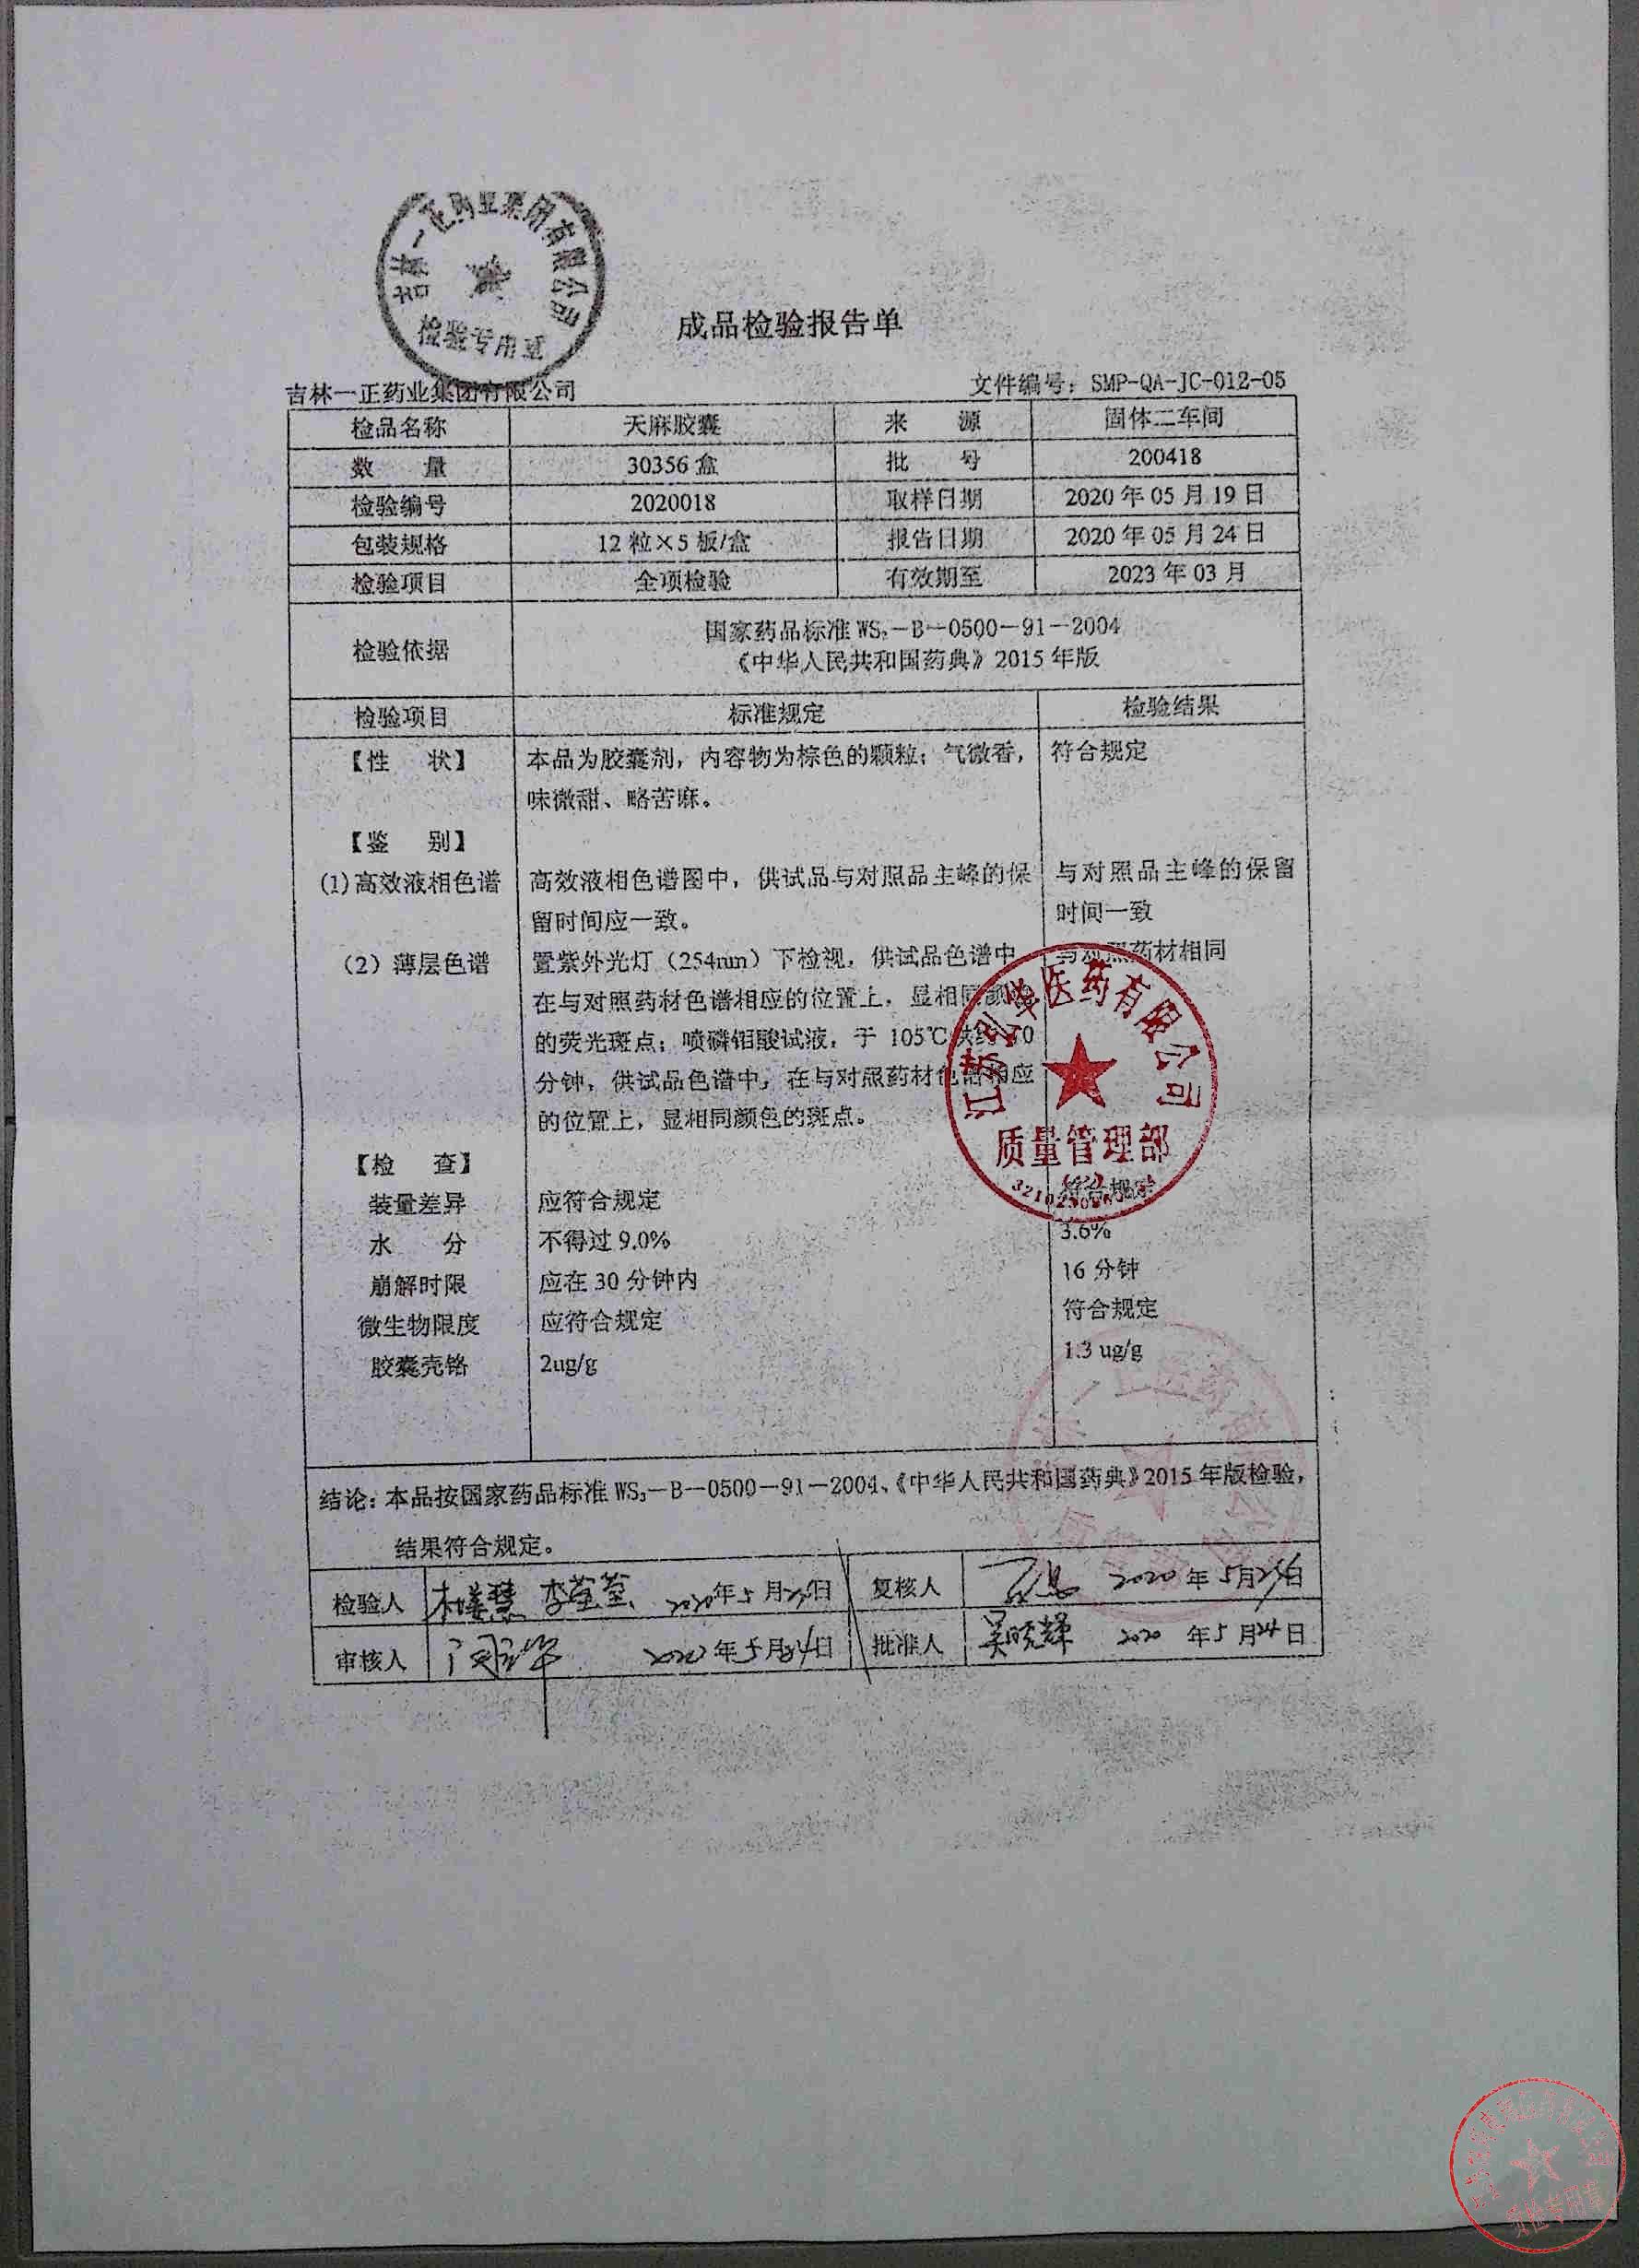 吉林一正药业集团有限公司
检验专用章
成品检验报告单
吉林一正药业集团有限公司 文件编号：SMP-QA-JC-012-05
检品名称 天麻胶囊 来 源 固体二车间
数 量 30356 盒 批 号 200418
检验编号 2020018 取样日期 2020 年 05 月 19 日
包装规格 12 粒×5 板/盒 报告日期 2020 年 05 月 24 日
检验项目 全项检验 有效期至 2023 年 03 月
检验依据 国家药品标准 WS₃－B－0500－91－2004
《中华人民共和国药典》2015 年版
检验项目 标准规定 检验结果
【性 状】 本品为胶囊剂，内容物为棕色的颗粒；气微香， 符合规定
味微甜、略苦麻。
【鉴 别】
(1)高效液相色谱 高效液相色谱图中，供试品与对照品主峰的保 与对照品主峰的保留
留时间应一致。 时间一致
（2）薄层色谱 置紫外光灯（254nm）下检视，供试品色谱中 与对照药材相同
在与对照药材色谱相应的位置上，显相同颜色
的荧光斑点；喷磷钼酸试液，于 105℃烘约 10
分钟，供试品色谱中，在与对照药材色谱相应
的位置上，显相同颜色的斑点。
医药有限公司
质量管理部
【检 查】
装量差异 应符合规定 符合规定
水 分 不得过 9.0% 3.6%
崩解时限 应在 30 分钟内 16 分钟
微生物限度 应符合规定 符合规定
胶囊壳铬 2ug/g 1.3 ug/g
结论：本品按国家药品标准 WS₃－B－0500－91－2004、《中华人民共和国药典》2015 年版检验，
结果符合规定。
检验人 2020年5月 日 复核人 2020年5月 日
审核人 2020年5月24日 批准人 吴晓辉 2020 年5月24日
质检专用章